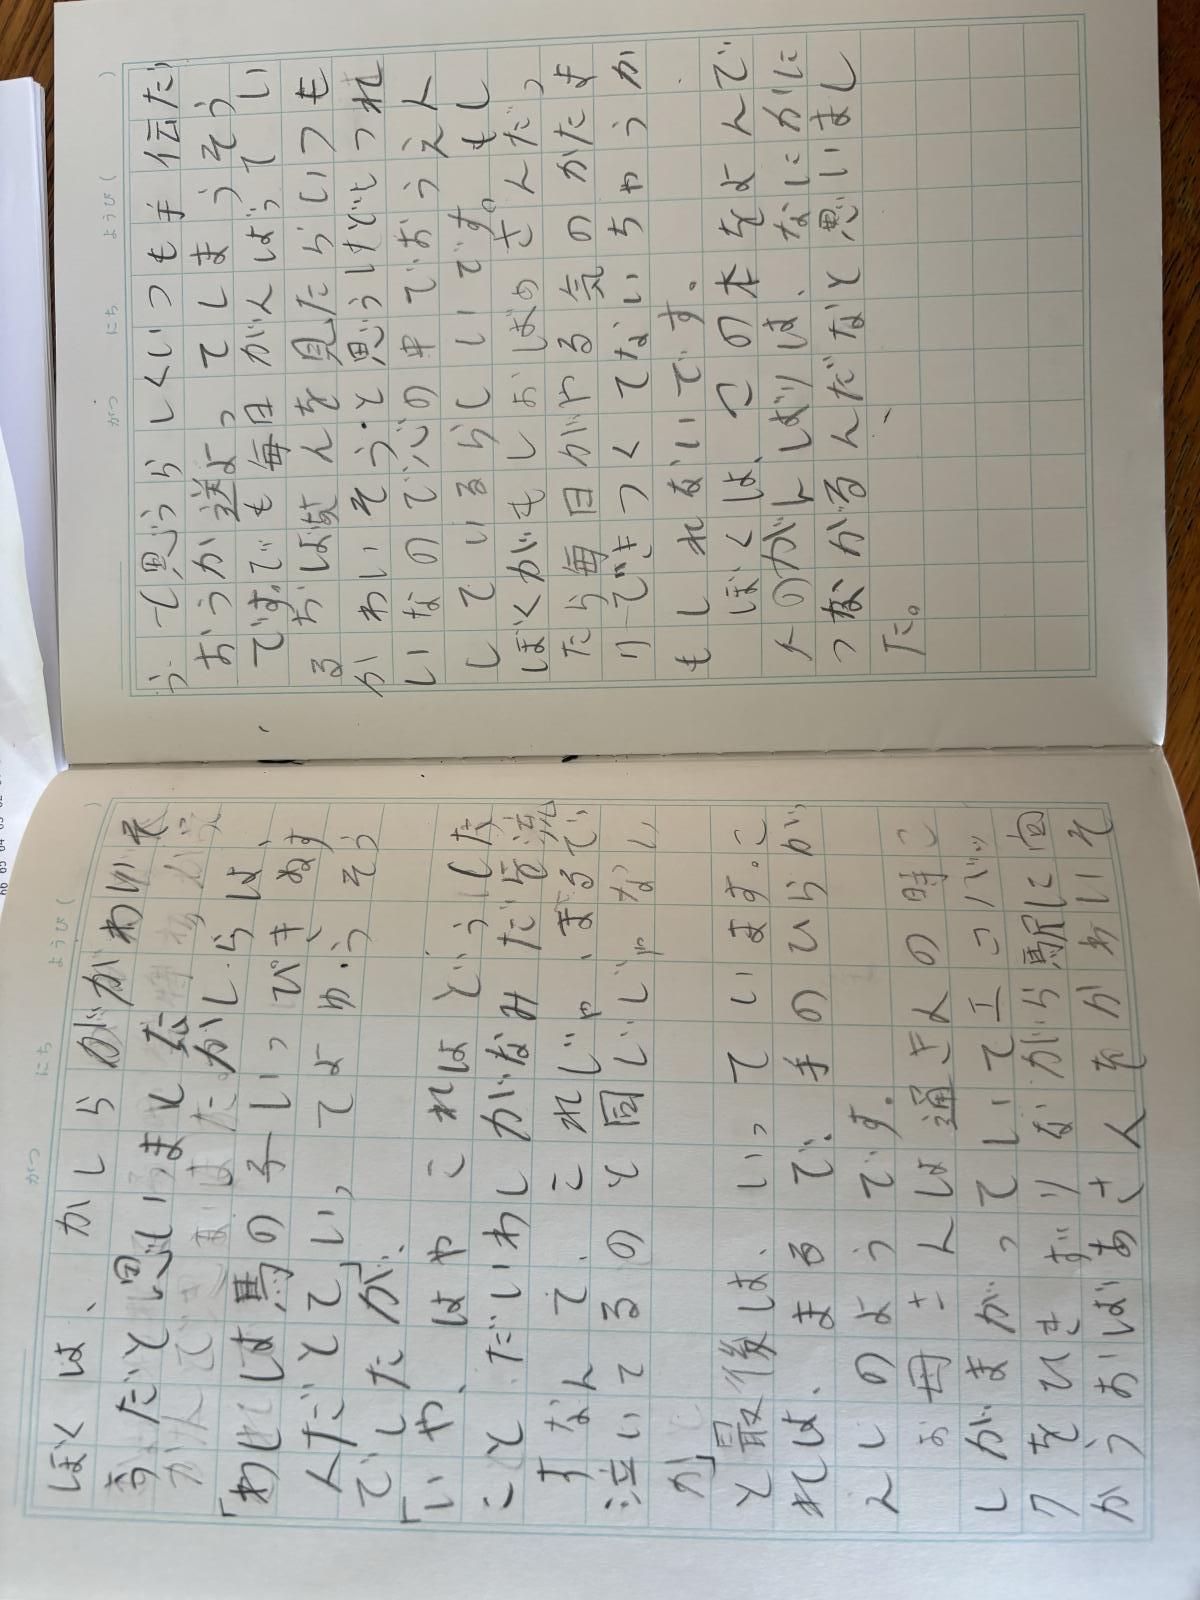 がつ にち ようび(
ぼくは、かしらがかわいそ
うだと思いました
かしらは、
「わしは馬の子いっぴきぬす
んだとていい、てよゆうそう
でしたが、
「いや、はやこれはどうした
ことだいわしがなみだ
すなんて、これじゃ、まるで
泣いてるのと同じじゃない
か」
と最後は、いっています。こ
れは、まるで、手のひらが
んしのようです。
お母さんは通きんの時こ
しがまがっていてエコバッ
クをひきずりながら駅に向
かうおばあさんをかわいそ
がつ にち ようび(
うって思うらしくいつも手伝だ
おうか迷よってしまうそう
です。でも毎日がんばってい
るおばさんを見たらいつも
かわいそう・と思うけどしつれ
いなので心の中でおうえん
しているらしいです。もし
ぼくがもしおばあさんだっ
たら毎日がやる気のかたま
りできつくてないちゃうか
もしれないです。
ぼくは、この本をよんで
人のがんばりは、なにかに
つながるんだなと思いまし
た。